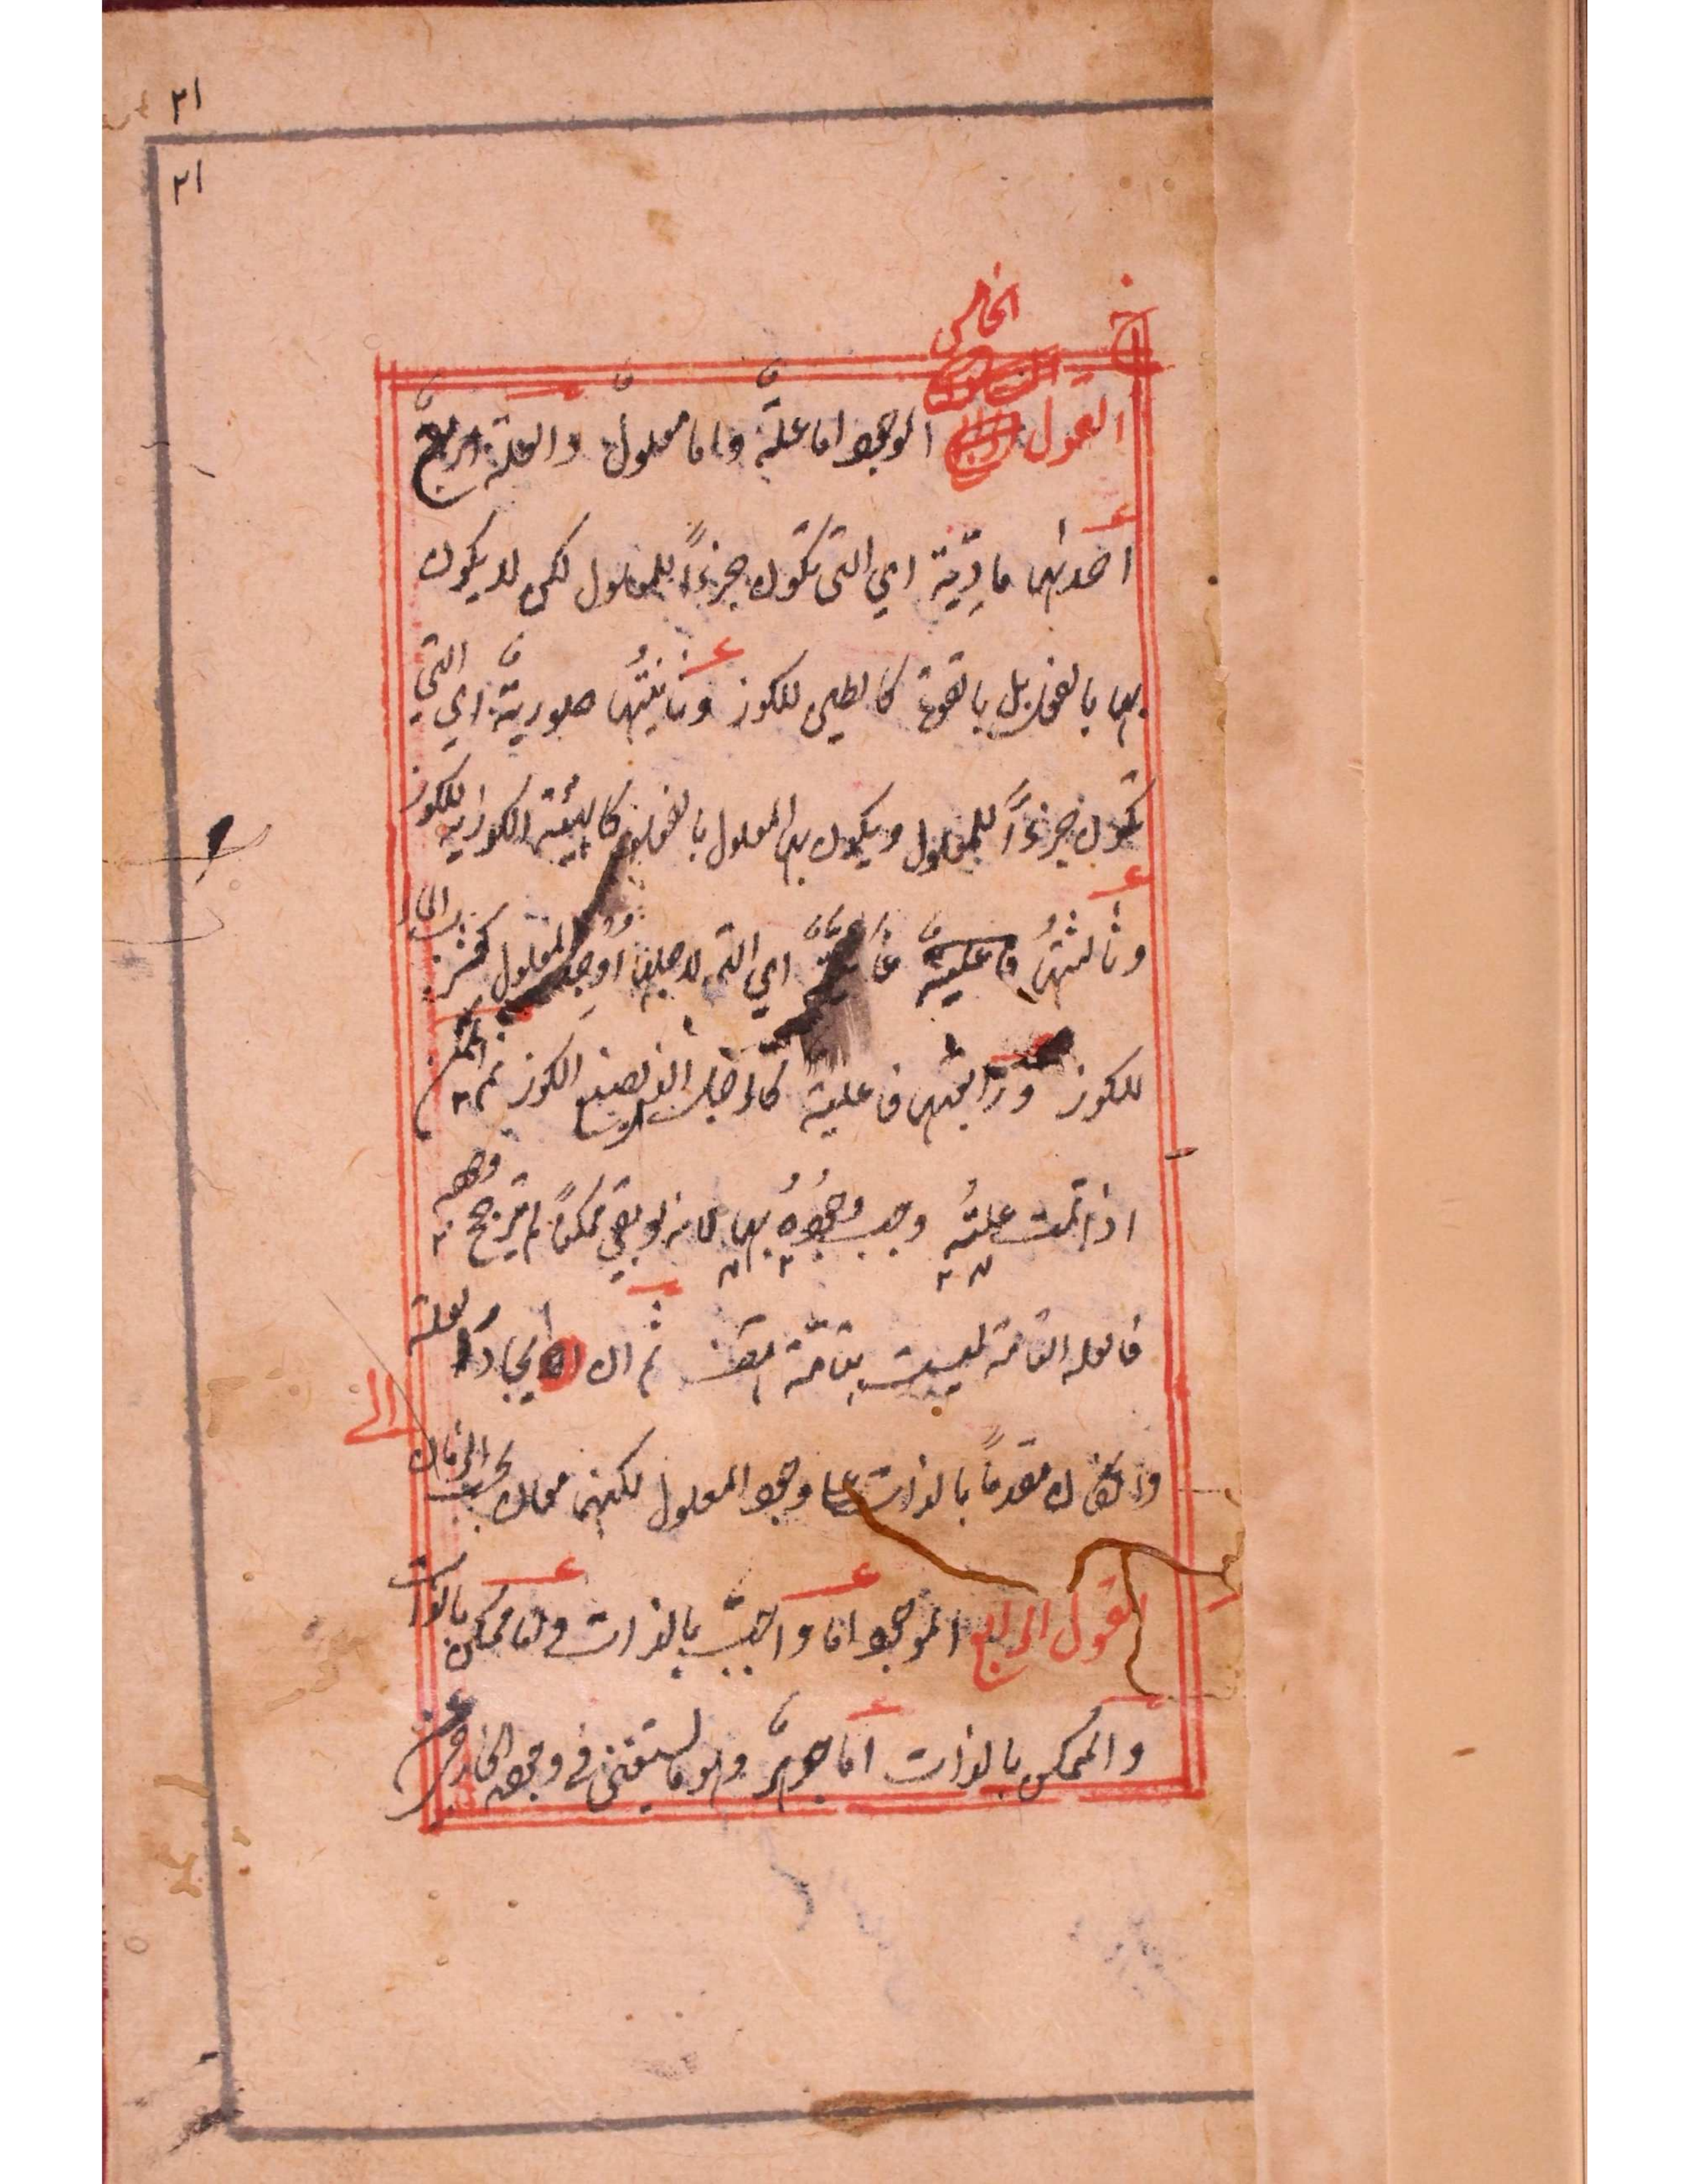 ٢١
٢١
خ
الخامس
القول الموجود اما علة واما معلول والعلة اربع
احدىها مادية اي التي تكون جزءاً للمعلول لكن لا يكون
بها بالفعل بل بالقوة كالطين للكوز وثانيتها صورية اي التي
تكون جزءاً للمعلول ويكون بها المعلول بالفعل كالهيئة الكوزية للكوز
وثالثتها غائية اي التي لاجلها وجد المعلول كشرب الماء
للكوز ورابعتها فاعلية كالفاعل الذي يصنع الكوز ثم الممكن
اذا تمت علته وجب وجوده بها لانه لو بقي ممكناً لم يترجح وجوده
فالعلة التامة ليست بتامة هف ثم ان الايجاد والعلة
الى
وان كان مقدماً بالذات على وجود المعلول لكنهما معان بحسب الزمان
القول الرابع الموجود اما واجب بالذات واما ممكن بالذات
والممكن بالذات اما جوهر وهو ما يستغني في وجوده الخارجي عن